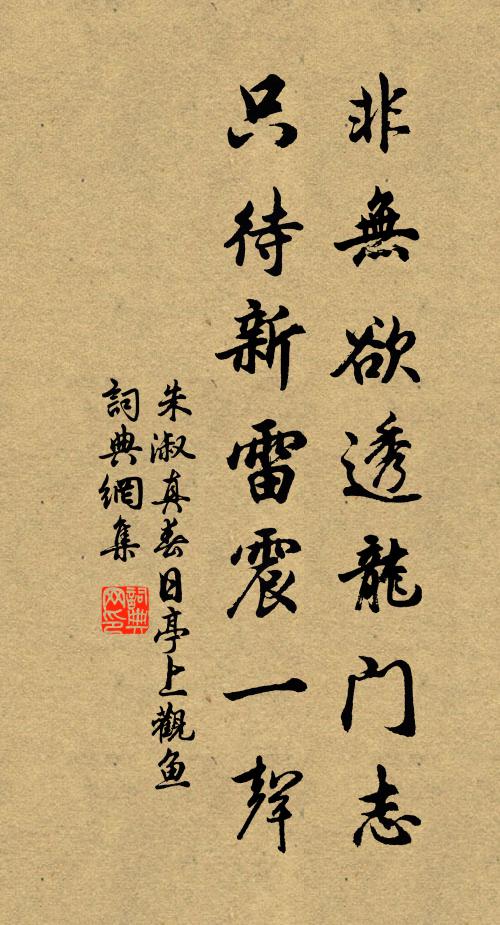 非無欲透龍门志
只待新雷震一聲
朱淑真春日亭上觀鱼
詞典網集
詞典
网印